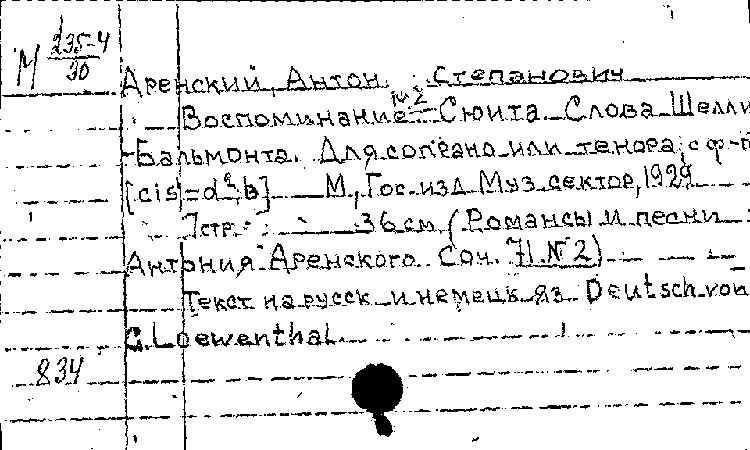 М 235-4
30
Аренский, Антон Степанович
№2
Воспоминание. Сюита. Слова Шелли
-Бальмонта. Для сопрано или тенора, с ф-п
[cis=d²,b] М., Гос. изд. Муз. сектор, 1929
7 стр. 36 см (Романсы и песни
Антония Аренского. Соч. 71. № 2)
Текст на русск. и немецк. яз. Deutsch von
G. Loewenthal.
834